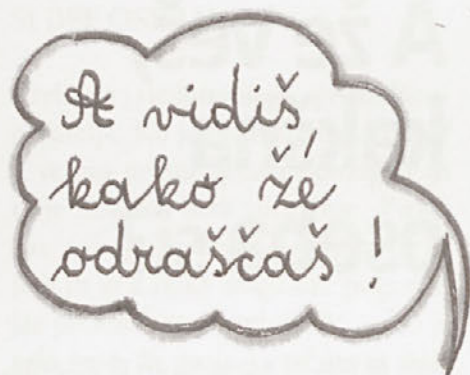 A vidiš,
kako že
odraščaš!